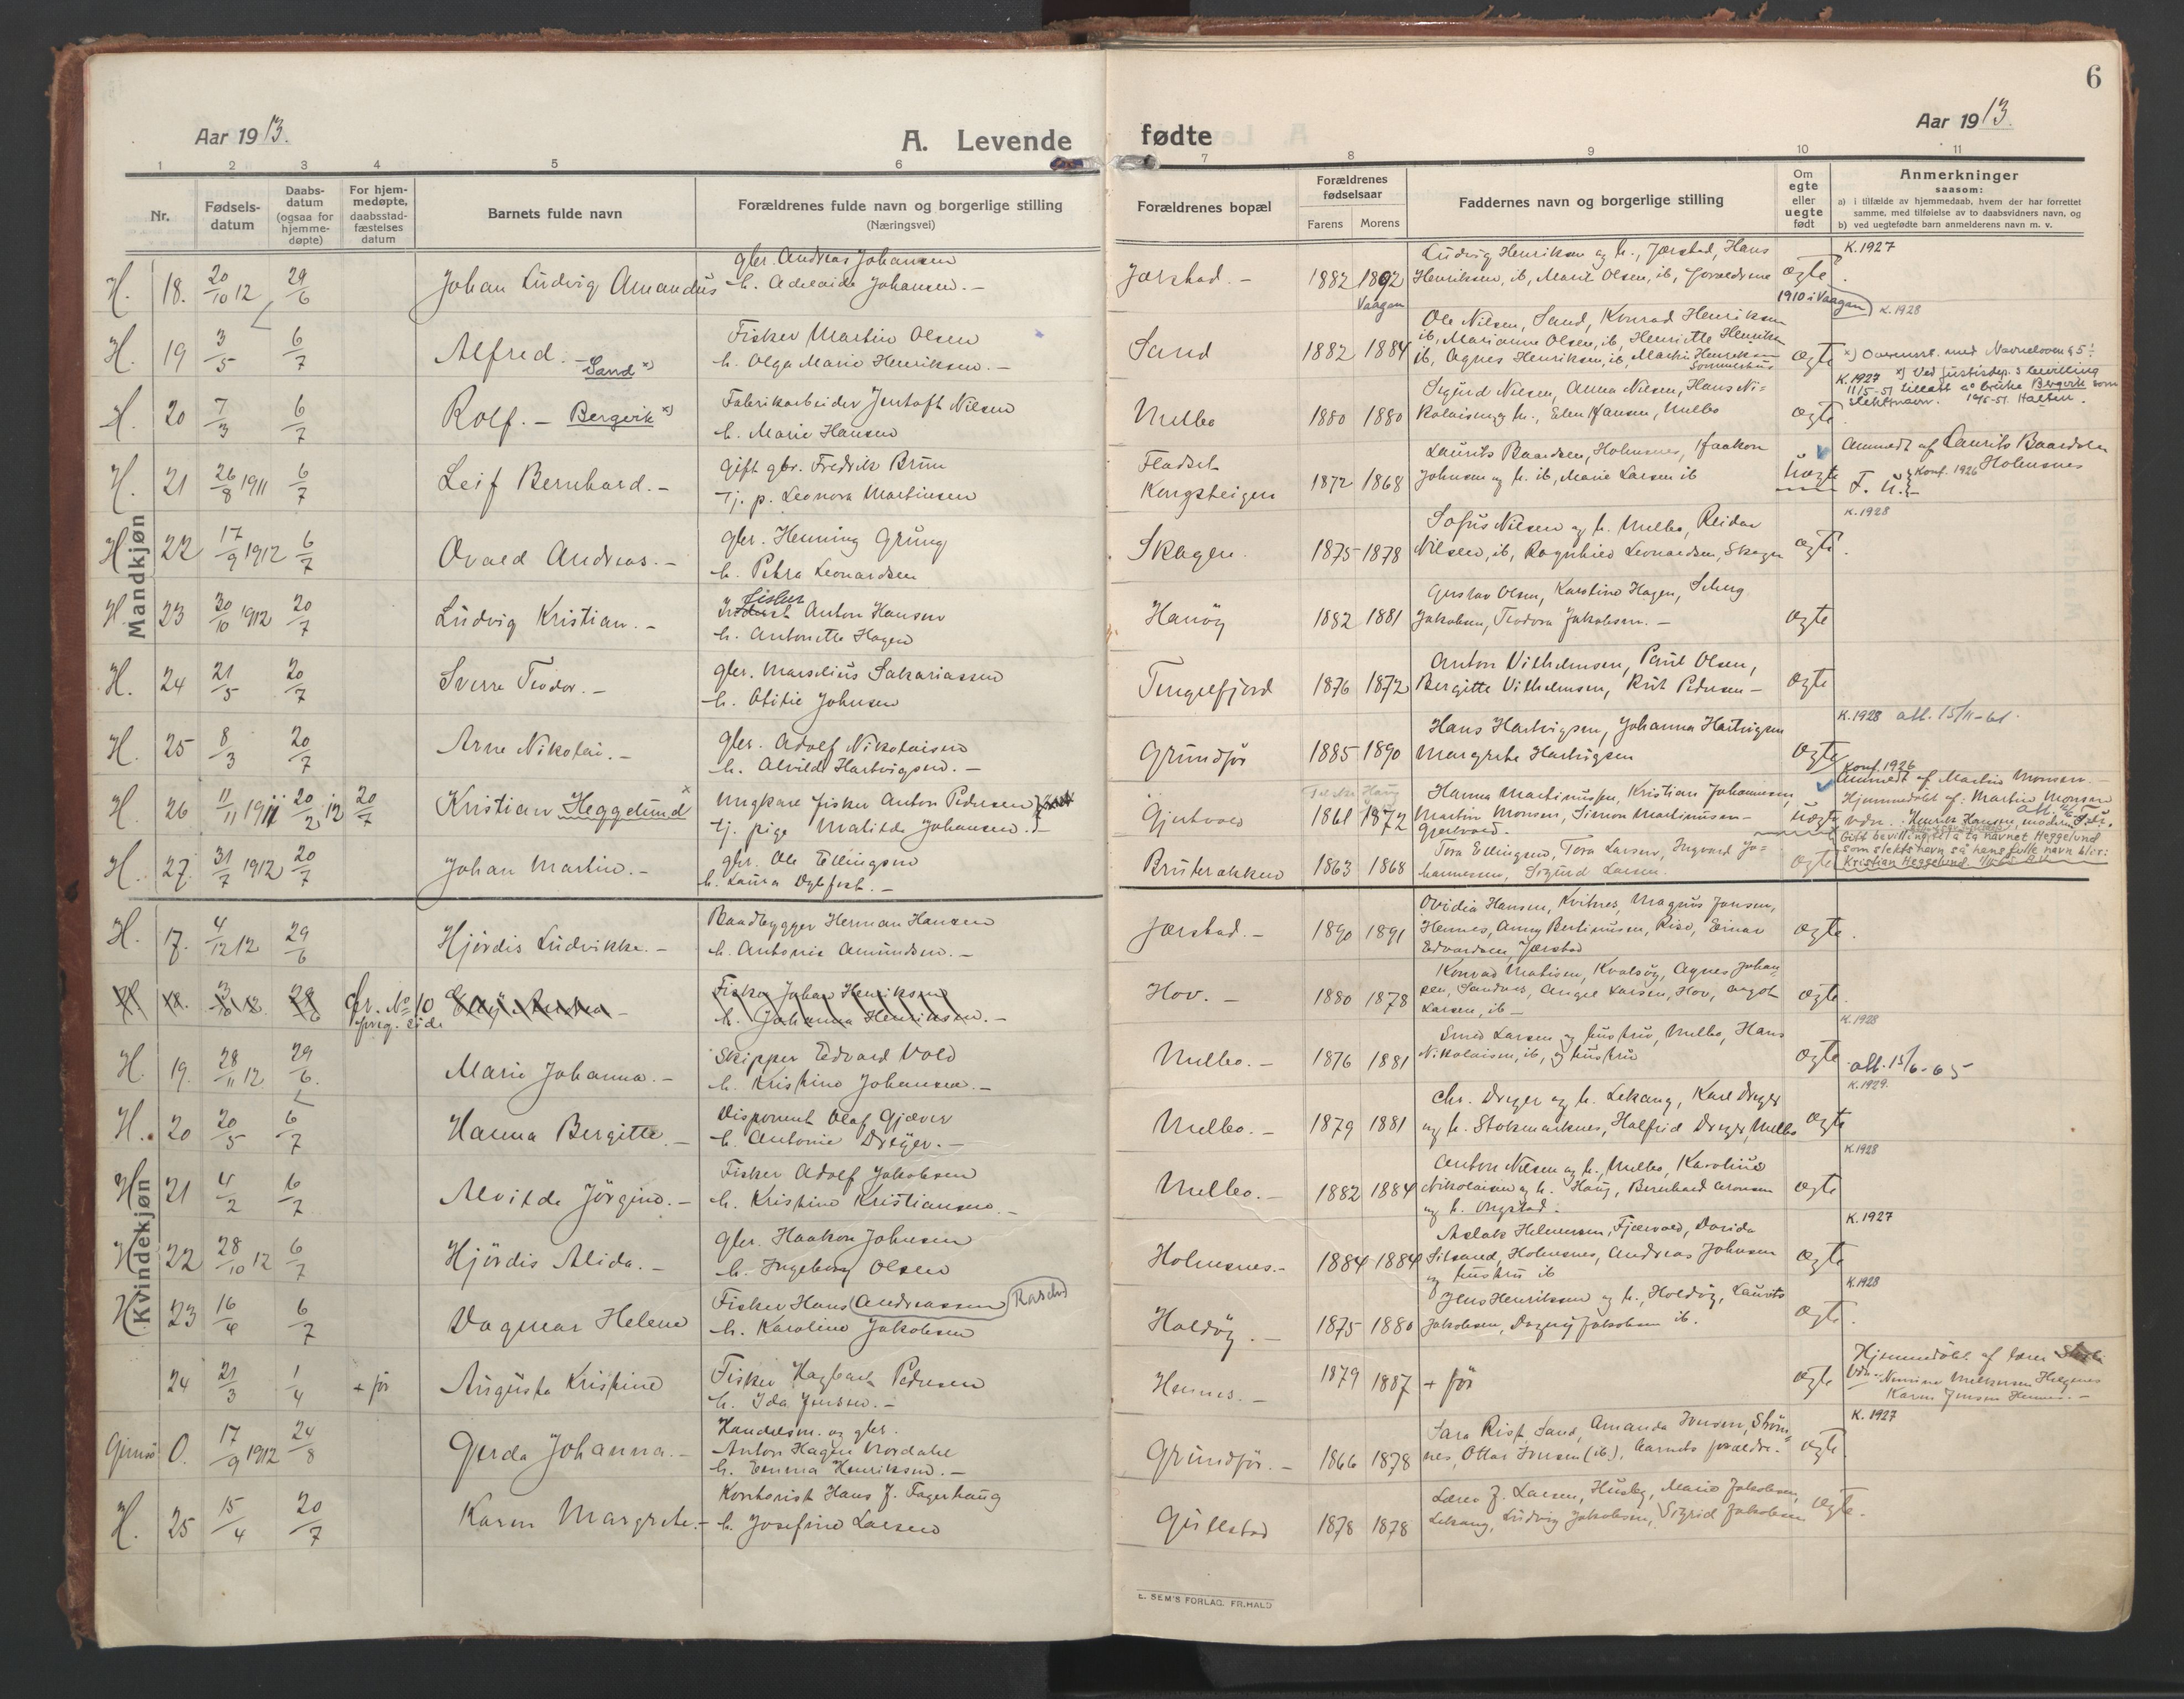 6
Aar 1913.
A. Levende
fødte
Aar 1913.
1 2 3 4 5 6 7 8 9 10 11
Nr.
Fødsels-
datum
Daabs-
datum
(ogsaa for
hjemme-
døpte)
For hjem-
medøpte,
daabsstad-
fæstelses
datum
Barnets fulde navn
Forældrenes fulde navn og borgerlige stilling
(Næringsvei)
Forældrenes bopæl
Forældrenes
fødselsaar
Farens Morens
Faddernes navn og borgerlige stilling
Om
egte
eller
uegte
født
Anmerkninger
saasom:
a) i tilfælde av hjemmedaab, hvem der har forrettet
samme, med tilføielse av to daabsvidners navn, og
b) ved uegtefødte barn anmelderens navn m. v.
Mandkjøn
H. 18. 20/10 12 29/6 Johan Ludvig Amandus
gbr. Andreas Johansen
h. Adelaide Johansen.-
Jørstad.- 1882 1892
Vaagan
Ludvig Henriksen og h., Jørstad, Hans
Henriksen, ib, Marit Olsen, ib, forældrene
egte
K.1927
1910 i Vaagan
H. 19 3/5 6/7 Alfred.- Sand x)
Fisker Martin Olsen
h. Olga Marie Henriksen.-
Sand 1882 1884
Ole Nilsen, Sand, Konrad Henriksen
ib, Marianne Olsen, ib, Henriette Henriksen
ib, Agnes Henriksen, ib, Martin Henriksen
egte
K.1928
x) Overensst. med Navneloven § 5
H. 20 7/3 6/7 Rolf.- Bergvik x)
Fabrikarbeider Jentoft Nilsen
h. Marie Hansen
Melbo 1880 1880
Sigurd Nilsen, Anna Nilsen, Hans Ni-
kolaisen og h., Elen Hansen, Melbo
egte
K.1927 x) Ved justisdep.s bevilling
11/5-51 tillatt å bruke Bergvik som
slektsnavn.
H. 21 26/8 1911 6/7 Leif Bernhard.-
Gift gbr. Fredrik Brun
Tj. p. Leonora Martinsen
Fladset
Kongsteigen 1872 1868
Laurits Baardsen, Holmsnes, Haakon
Johnsen og h. ib, Marie Larsen ib
uegte
Anmeldt af Laurits Baardsen
Holmsnes
Konf. 1926
F. U.
H. 22 17/9 1912 6/7 Ovald Andreas.-
gbr. Henning Grung
h. Petra Leonardsen
Skagen 1875 1878
Sofus Nilsen og h. Melbo, Reidar
Nilsen, ib, Ragnhild Leonardsen, Skagen
egte
K.1928
H. 23 30/10 1912 20/7 Ludvig Kristian.-
fisker Anton Hansen
h. Antonette Hagen
Hanøy 1882 1881
Gustav Olsen, Karoline Hagen,
Jakobsen, Teodora Jakobsen.-
egte
H. 24 21/5 20/7 Sverre Teodor.-
gbr. Marselius Sakariassen
h. Otitie Johnsen
Tengelfjord 1876 1872
Anton Vilhelmsen, Paul Olsen,
Bergitte Vilhelmsen, Rut Pedersen-
egte
H. 25 8/3 20/7 Arne Nikolai.-
gbr. Adolf Nikolaisen
h. Alvilde Hartvigsen.-
Grundfør 1885 1890
Hans Hartvigsen, Johanna Hartvigsen
Margrete Hartvigsen
egte
K.1928 att. 15/11-61.
H. 26 11/11 1911 20/2 12 20/7 Kristian Heggelund x
Ungkare fisker Anton Pedersen
tj. pige Matilde Johansen.
Gjertvold 1861 1872
Hanna Martinussen, Kristian Johannesen,
Martin Monsen, Simon Martinusen-
uegte
Konf. 1926
Anmeldt af Martin Monsen.-
Hjemmedøbt af: Martin Monsen
Gitt bevilling til å ta navnet Heggelund
som slektsnavn så hans fulle navn blir:
Kristian Heggelund
H. 27. 31/7 1912 20/7 Johan Martin.-
gbr. Ole Ellingsen
h. Laura Dybfest.-
Bruterakken 1863 1868
Tora Ellingsen, Tora Larsen, Ingvard Jo-
hannessen, Sigurd Larsen.
egte
Kvindekjøn
H. 17. 4/12 12 29/6 Hjørdis Ludvikke.-
Baadbygger Herman Hansen
h. Antonie Amundsen.-
Jørstad.- 1890 1891
Ovidia Hansen, Kvitnes, Magnus Jensen,
Hennes, Anny Bertinusen, Risø, Einar
Edvardsen, Jørstad
egte
cfr. No 10
forrig. side
Fisker Johan Henriksen
h. Johanna Henriksen.-
Hov.- 1880 1878
Konrad Matisen, Kvalsøy, Agnes Johan-
sen, Sandnes, Angel Larsen, Hov, Margot
Larsen, ib-
egte
H. 19. 28/11 12 29/6. Marie Johanna.-
Skipper Edvard Vold
h. Kristine Johansen.-
Melbo.- 1876 1881
Smed Larsen og hustru, Melbo, Hans
Nikolaisen, ib, og hustru
egte
K.1928
att. 15/6-65
H. 20 20/5 6/7 Hanna Bergitte.-
Disponent Olaf Gjæver
h. Antonie Dreyer.-
Melbo.- 1879 1881
Chr. Dreyer og h. Lekang, Karl Dreyer
og h. Stokmarknes, Halfrid Dreyer, Melbo
egte
K.1929.
H. 21 4/2 6/7 Alvilde Jørgine.-
Fisker Adolf Jakobsen
h. Kristine Kristiansen.-
Melbo.- 1882 1884
Anton Nilsen og h., Melbo, Karoline
Nikolaisen og h. Haug, Bernhard Aronsen
og h. Ongstad.
egte
K.1928
H. 22 28/10 12 6/7 Hjørdis Alida.-
gbr. Haakon Johnsen
h. Ingeborg Olsen
Holmsnes.- 1884 1884
Aslak Helmersen, Fjærvold, Dorida
Silsand, Holmsnes, Andreas Johnsen
og hustru ib
egte
K.1927
H. 23 16/4 6/7 Dagmar Helene
Fisker Hans Andreassen Rasch
h. Karoline Jakobsen
Haldøy.- 1875 1880
Jens Henriksen og h., Holdøy, Laurits
Jakobsen, Dagny Jakobsen ib.
egte
K.1928
24 21/3 1/4 + før Augusta Kristine
Fisker Hagbart Pedersen
h. Ida Jensen.-
Hennes.- 1879 1887 + før
egte
Hjemmedøbt af lærer
Vdn. Nimine Melkersen Helgenes
Karen Jensen Hennes.-
Gimsø O. 17/9 1912 24/8 Gerda Johanna.-
Handelsm. og gbr.
Anton Hagen Nordahl
h. Emma Henriksen.-
Grundfør.- 1866 1878
Sara Rist, Sand, Amanda Jensen, Strøm-
nes, Ottar Jensen (ib), barnets forældre.
egte
K. 1927
H. 25 15/4 20/7 Karen Margrete.-
Kontorist Hans J. Fagerhaug
h. Josefine Larsen
Gullstad 1878 1878
Lærer J. Larsen, Husby, Marie Jakobsen,
Lekang, Ludvig Jakobsen, Sigrid Jakobsen
egte.
E. SEM'S FORLAG. FR.HALD